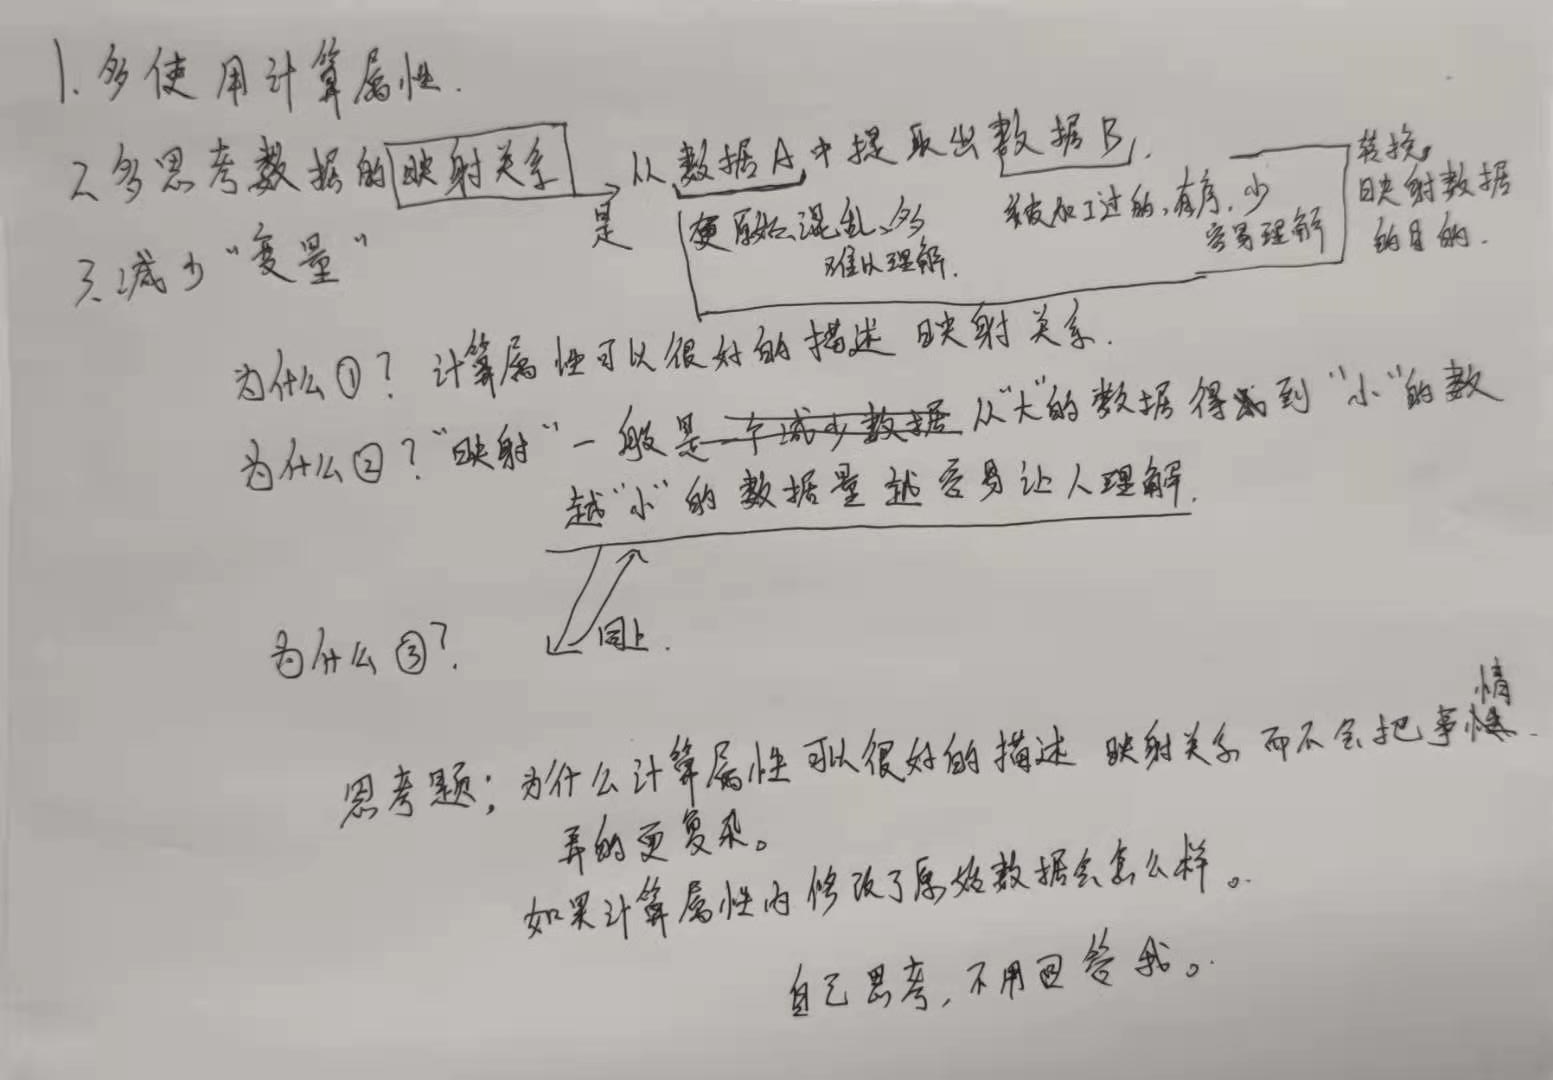 1. 多使用计算属性.
2. 多思考数据的映射关系 是 从数据A中提取出数据B.
更原始、混乱、多
难以理解.
被加工过的、有序、少
容易理解
转换,
映射数据
的目的.
3. 减少“变量”
为什么①? 计算属性可以很好的描述映射关系.
为什么②? “映射”一般是一个减少数据从“大”的数据得到“小”的数
越“小”的数据量越容易让人理解.
为什么③? 同上.
思考题: 为什么计算属性可以很好的描述映射关系而不会把事情
弄的更复杂。
如果计算属性内修改了原始数据会怎么样。
自己思考, 不用回答我。